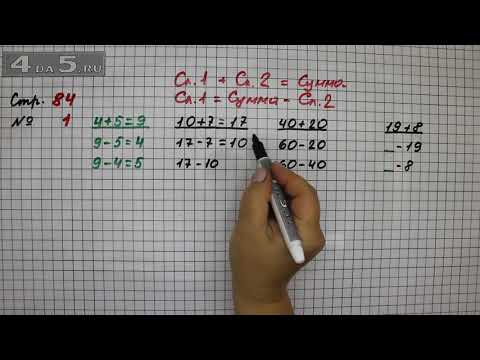 4DA5.RU
Сл.1 + Сл.2 = Сумма.
Стр. 84 Сл.1 = Сумма - Сл.2
№ 1 4+5=9 10+7=17 40+20 19+8
9-5=4 17-7=10 60-20 _-19
9-4=5 17-10 60-40 _-8